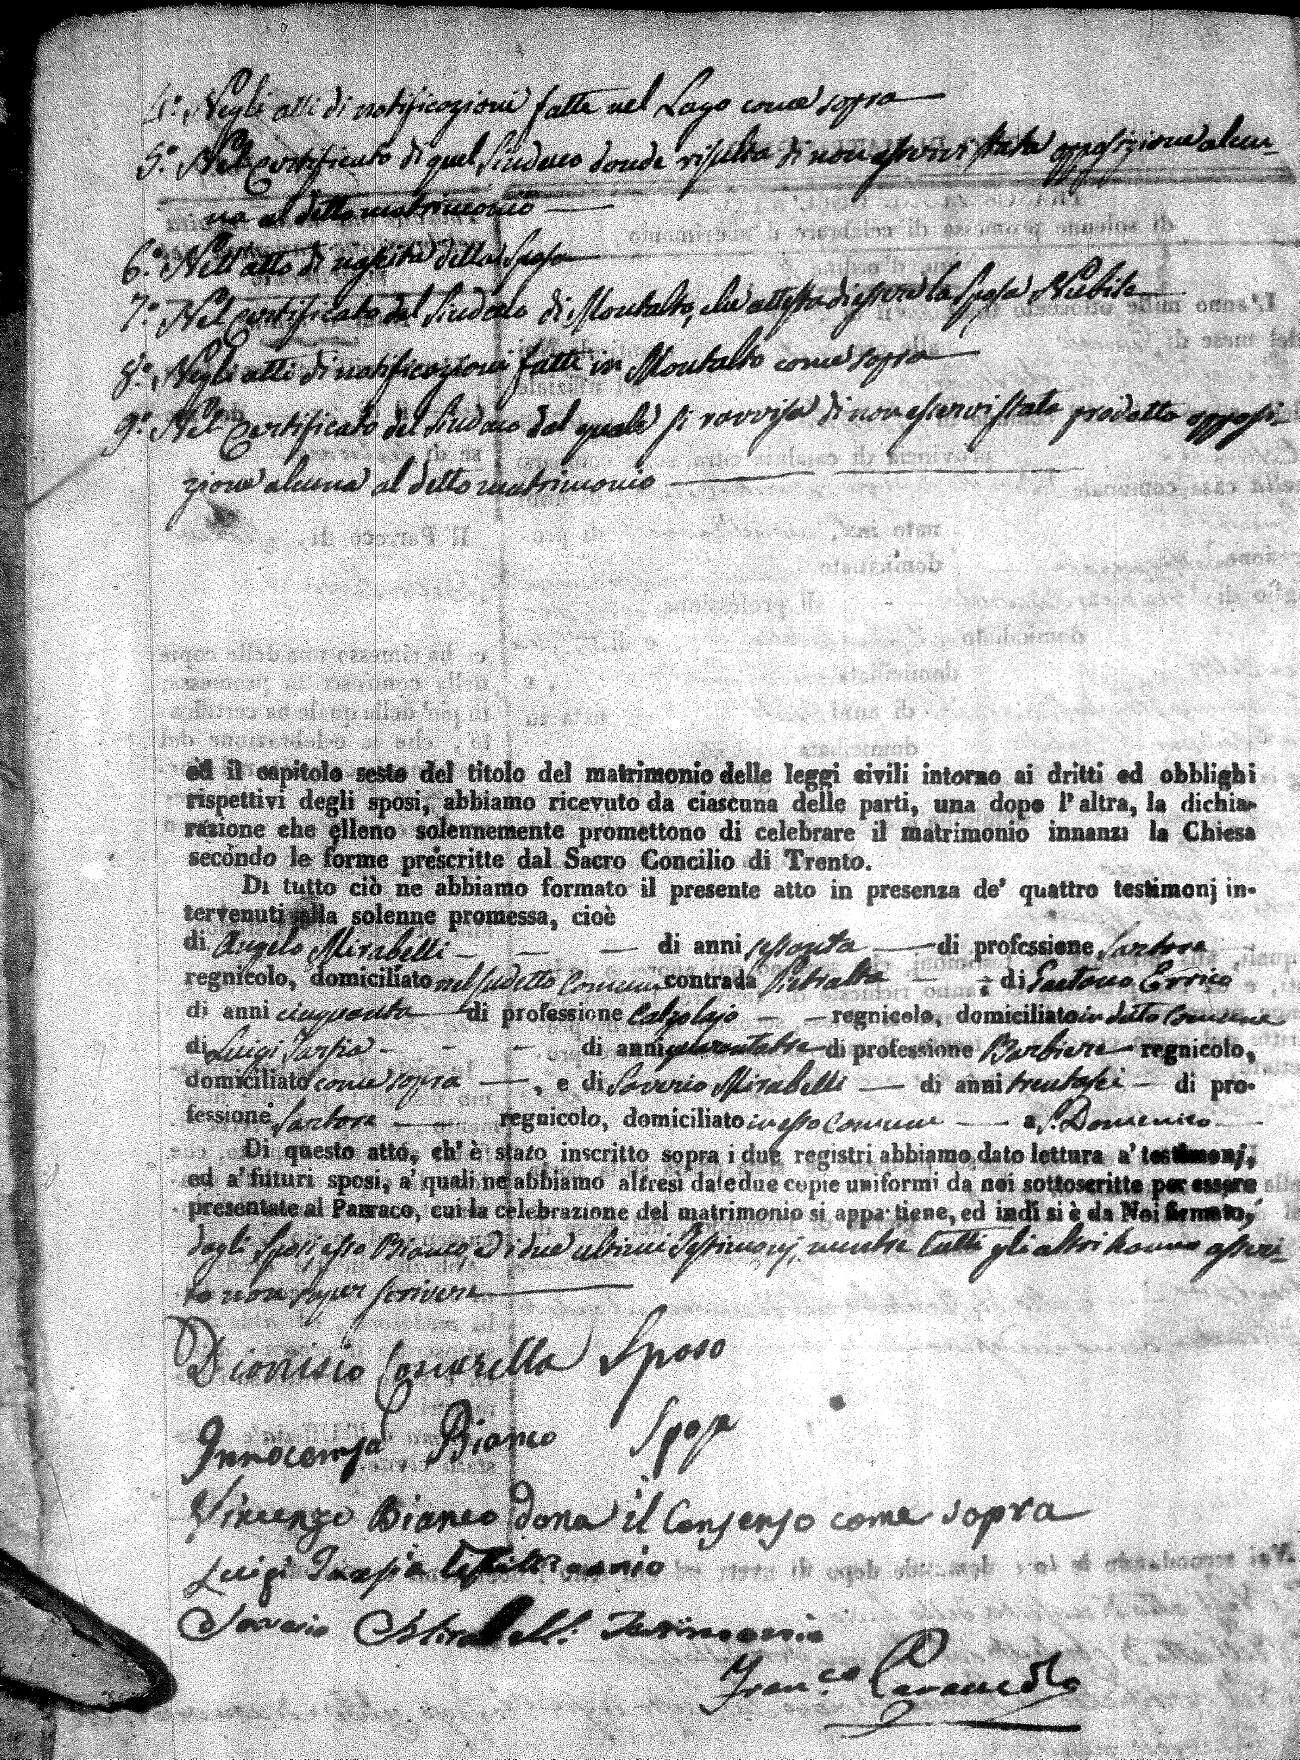 4.° Negli atti di notificazioni fatte nel Lago come sopra
5.° Nel Certificato di quel Sindaco donde risulta di non esservi stata opposizione alcu-
na al detto matrimonio
6.° Nell'atto di nascita della Sposa
7.° Nel Certificato del Sindaco di Montalto, che attesta di essere la Sposa Nubile
8.° Negli atti di notificazioni fatti in Montalto come sopra
9.° Nel Certificato del Sindaco dal quale si ravvisa di non esservi stata prodotta opposi-
zione alcuna al detto matrimonio
ed il capitolo sesto del titolo del matrimonio delle leggi civili intorno ai dritti ed obblighi
rispettivi degli sposi, abbiamo ricevuto da ciascuna delle parti, una dopo l'altra, la dichia-
razione che elleno solennemente promettono di celebrare il matrimonio innanzi la Chiesa
secondo le forme prescritte dal Sacro Concilio di Trento.
Di tutto ciò ne abbiamo formato il presente atto in presenza de' quattro testimonj in-
tervenuti alla solenne promessa, cioè
di Angelo Mirabelli di anni sessanta di professione Sartore
regnicolo, domiciliato nel sudetto Comune contrada Pietralta di Gaetano Errico
di anni cinquanta di professione Calzolajo regnicolo, domiciliato in detto Comune
di Luigi Tarsia di anni quarantatre di professione Barbiere regnicolo,
domiciliato come sopra, e di Saverio Mirabelli di anni trentasei di pro-
fessione Sartore regnicolo, domiciliato in esso Comune a S. Domenico
Di questo atto, ch'è stato inscritto sopra i due registri abbiamo dato lettura a' testimonj,
ed a' futuri sposi, a' quali ne abbiamo altresì date due copie uniformi da noi sottoscritte per essere
presentate al Parraco, cui la celebrazione del matrimonio si appartiene, ed indi si è da Noi firmato,
dagli Sposi, esso Bianco, ed i due ultimi Testimonj, mentre tutti gli altri hanno asseri-
to non saper scrivere
Dionisio Coscarella Sposo
Innocenza Bianco Sposa
Vincenzo Bianco dona il Consenso come sopra
Luigi Tarsia testimonio
Saverio Mirabelli Testimonio
Fran.co